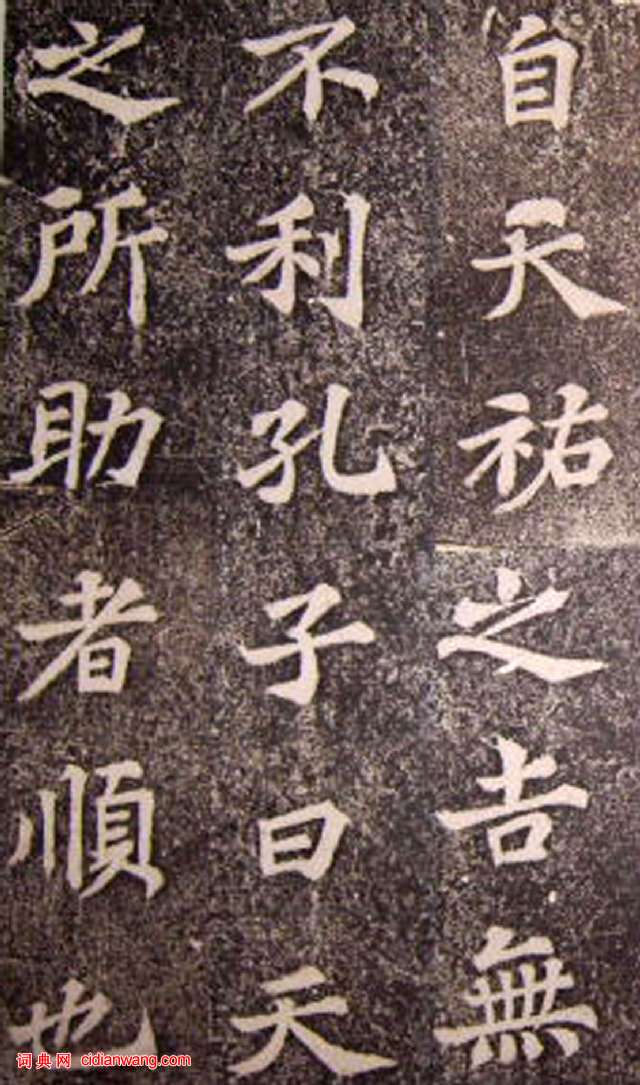 自天祐之吉無
不利孔子曰天
之所助者順也
词典网 cidianwang.com